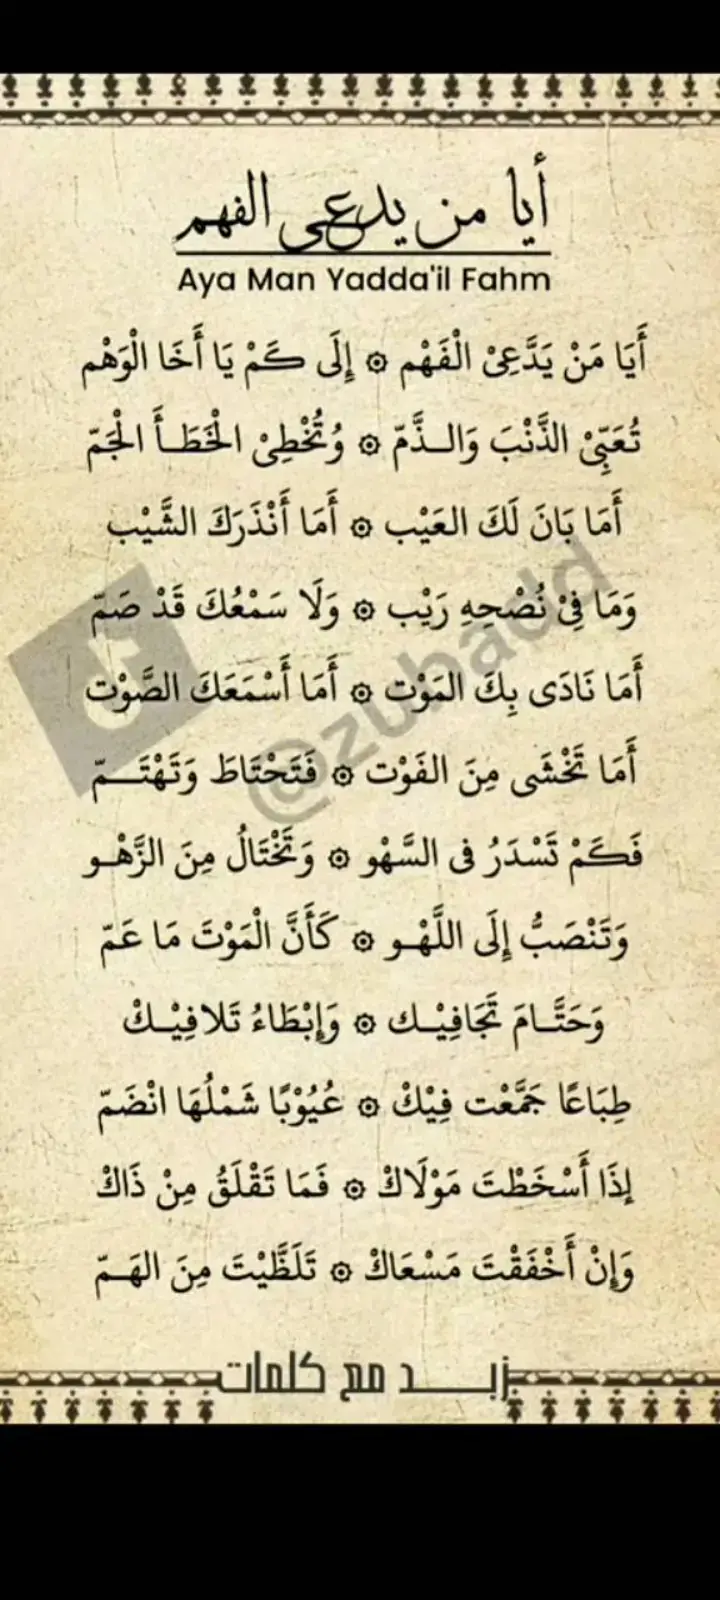 أيا من يدعي الفهم
Aya Man Yadda'il Fahm
أَيَا مَنْ يَدَّعِيْ الْفَهْم ۞ إِلَى كَمْ يَا أَخَا الْوَهْم
تُعَبِّيْ الذَّنْبَ وَالـذَّمّ ۞ وُتُخْطِيْ الْخَطَـأَ الْجَمّ
أَمَا بَانَ لَكَ العَيْب ۞ أَمَا أَنْذَرَكَ الشَّيْب
وَمَا فِيْ نُصْحِهِ رَيْب ۞ وَلَا سَمْعُكَ قَدْ صَمّ
أَمَا نَادَى بِكَ المَوْت ۞ أَمَا أَسْمَعَكَ الصَّوْت
أَمَا تَخْشَى مِنَ الفَوْت ۞ فَتَحْتَاطَ وَتَهْتَـــمّ
فَكَمْ تَسْدَرُ فى السَّهْو ۞ وَتَخْتَالُ مِنَ الزَّهْـو
وَتَنْصَبُّ إِلَى اللَّهْـو ۞ كَأَنَّ الْمَوْتَ مَا عَمّ
وَحَتَّـامَ تَجَافِيْـك ۞ وَإِبْطَاءُ تَلافِيْـكْ
طِبَاعًا جَمَّعْت فِيْكْ ۞ عُيُوْبًا شَمْلُهَا انْضَمّ
إِذَا أَسْخَطْتَ مَوْلَاكْ ۞ فَمَا تَقْلَقُ مِنْ ذَاكْ
وَإِنْ أَخْفَقْتَ مَسْعَاكْ ۞ تَلَظَّيْتَ مِنَ الهَـمّ
@zubadd
زبـــد مع كلمات